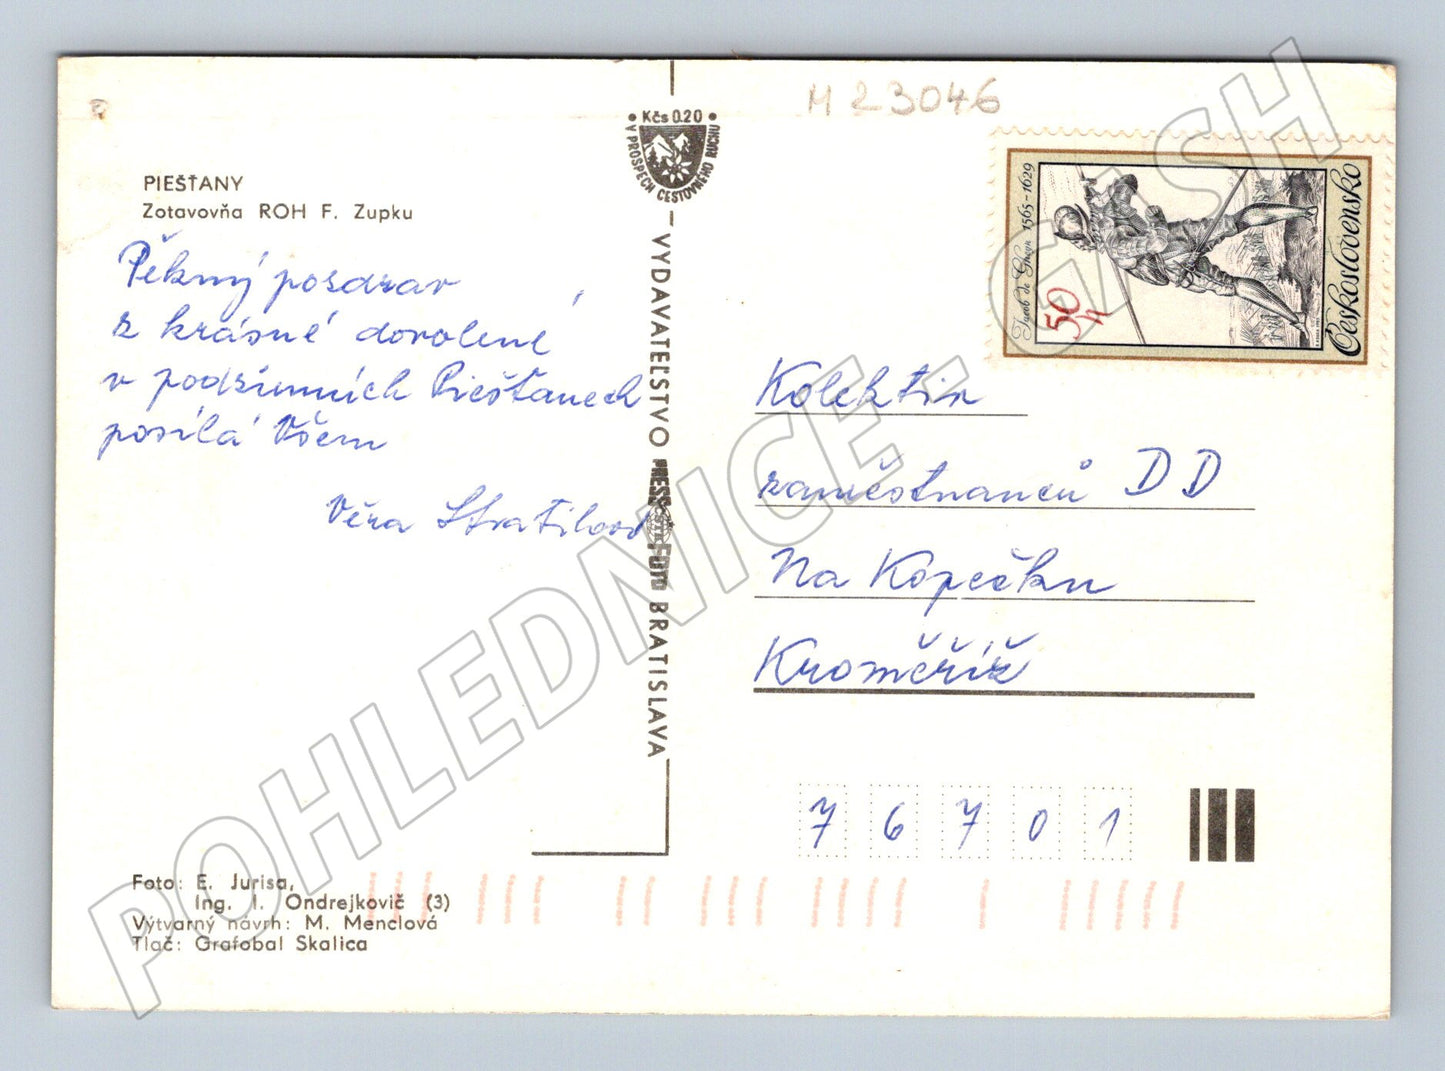 M 23046
Kčs 0.20
V PROSPECH CESTOVNÉHO RUCHU
PIEŠŤANY
Zotavovňa ROH F. Zupku
Pěkný pozdrav
z krásné dovolené
v podzimních Piešťanech
posílá Všem
Věra Stratilová
VYDAVATEĽSTVO PRESSFOTO BRATISLAVA
Jacob de Gheyn 1565-1629
50 h
Československo
Kolektiv
zaměstnanců DD
Na Kopečku
Kroměříž
76701
Foto: E. Jurisa,
Ing. I. Ondrejkovič (3)
Výtvarný návrh: M. Menclová
Tlač: Grafobal Skalica
POHLEDNICE - GASH